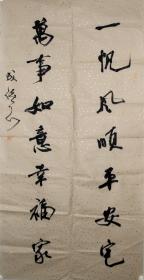 一帆风顺平安宅
萬事如意幸福家